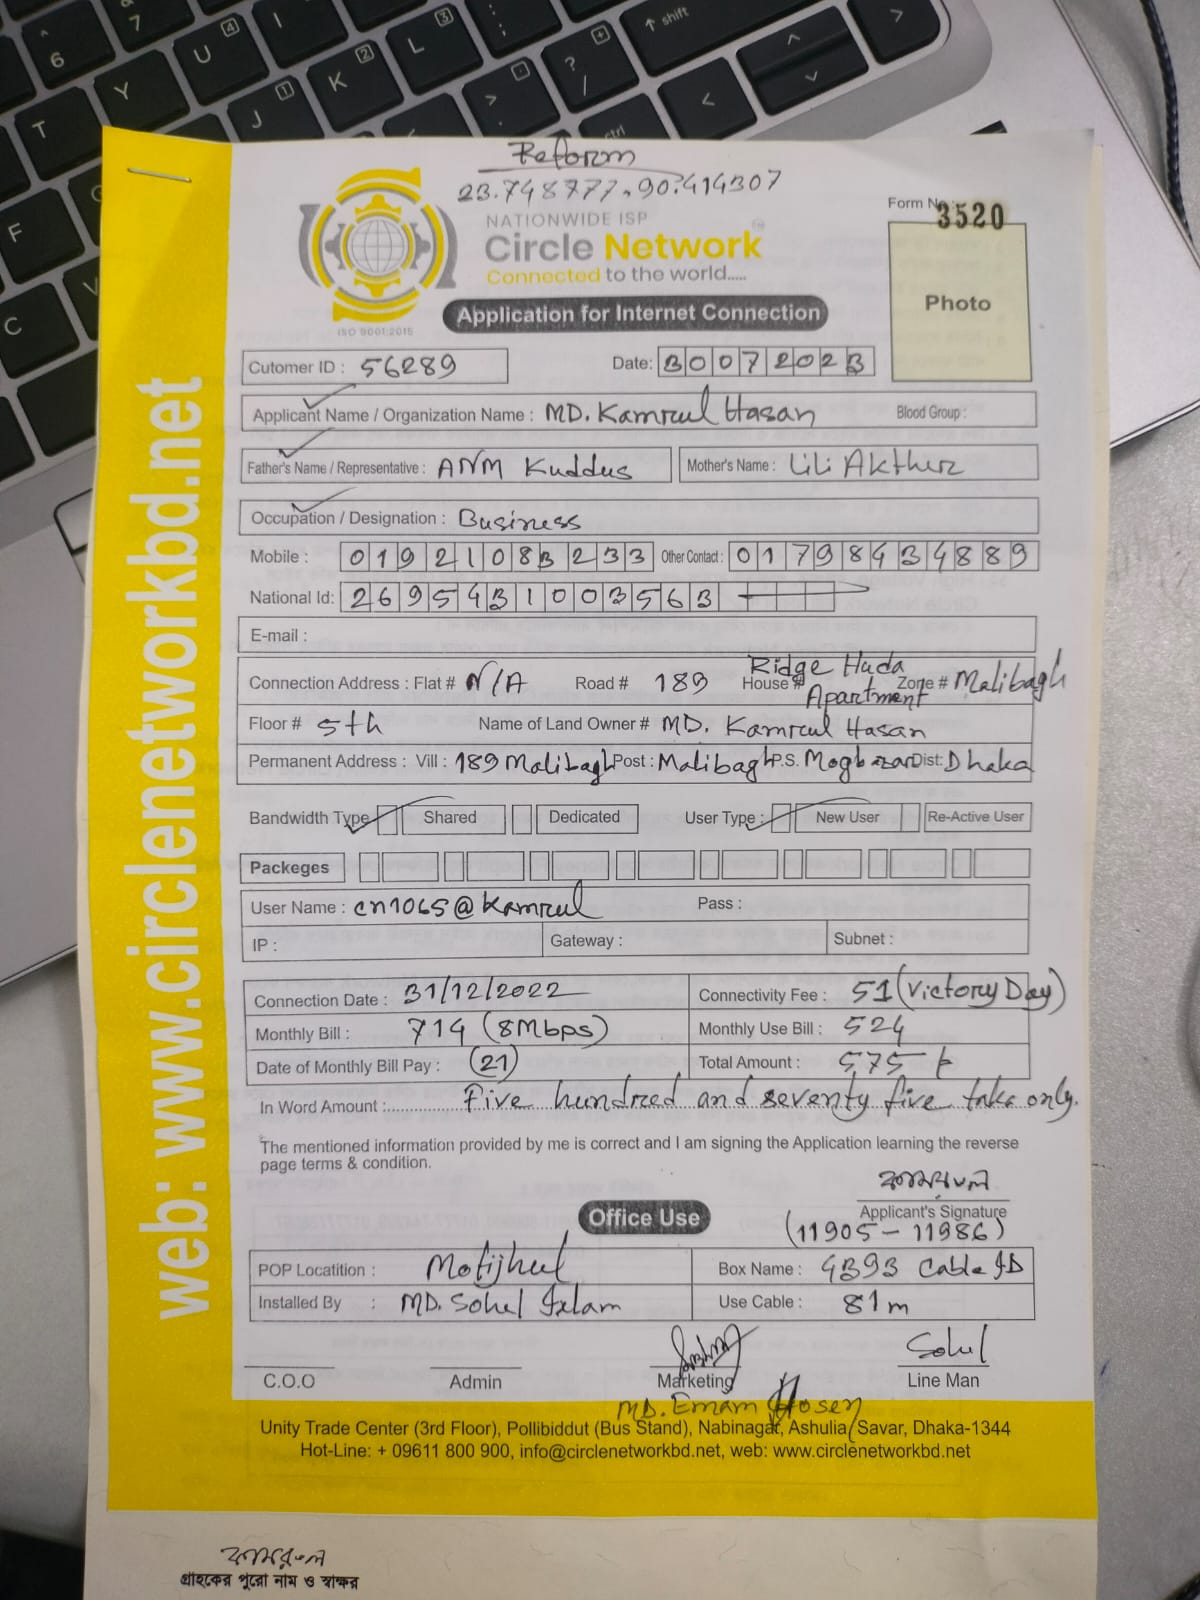 Reform
23.748777, 90.414307
NATIONWIDE ISP
Circle Network
Connected to the world.....
ISO 9001:2015
Form No.: 3520
Photo
Application for Internet Connection
Cutomer ID : 56289
Date: 30072023
Applicant Name / Organization Name : MD. Kamrul Hasan Blood Group :
Father's Name / Representative : ANM Kuddus Mother's Name : Lili Akther
Occupation / Designation : Business
Mobile : 01921083233 Other Contact : 01798434889
National Id: 2695431003563
E-mail :
Connection Address : Flat # N/A Road # 189 House # Ridge Huda Apartment Zone # Malibagh
Floor # 5th Name of Land Owner # MD. Kamrul Hasan
Permanent Address : Vill : 189 Malibagh Post : Malibagh P.S. Moghbazar Dist: Dhaka
Bandwidth Type Shared Dedicated User Type : New User Re-Active User
Packeges
User Name : cn1065@kamrul Pass :
IP : Gateway : Subnet :
Connection Date : 31/12/2022 Connectivity Fee : 51 (Victory Day)
Monthly Bill : 714 (8Mbps) Monthly Use Bill : 524
Date of Monthly Bill Pay : (21) Total Amount : 575 t
In Word Amount :..... Five hundred and seventy five taka only.
The mentioned information provided by me is correct and I am signing the Application learning the reverse
page terms & condition.
কামরুল
Applicant's Signature
Office Use
(11905 - 11986)
POP Locatition : Motijheel Box Name : 4393 Cable ID
Installed By : MD. Sohel Islam Use Cable : 81m
Sohel
C.O.O Admin Marketing Line Man
MD. Emam Hosen
Unity Trade Center (3rd Floor), Pollibiddut (Bus Stand), Nabinagar, Ashulia, Savar, Dhaka-1344
Hot-Line: + 09611 800 900, info@circlenetworkbd.net, web: www.circlenetworkbd.net
web: www.circlenetworkbd.net
কামরুল
গ্রাহকের পুরো নাম ও স্বাক্ষর